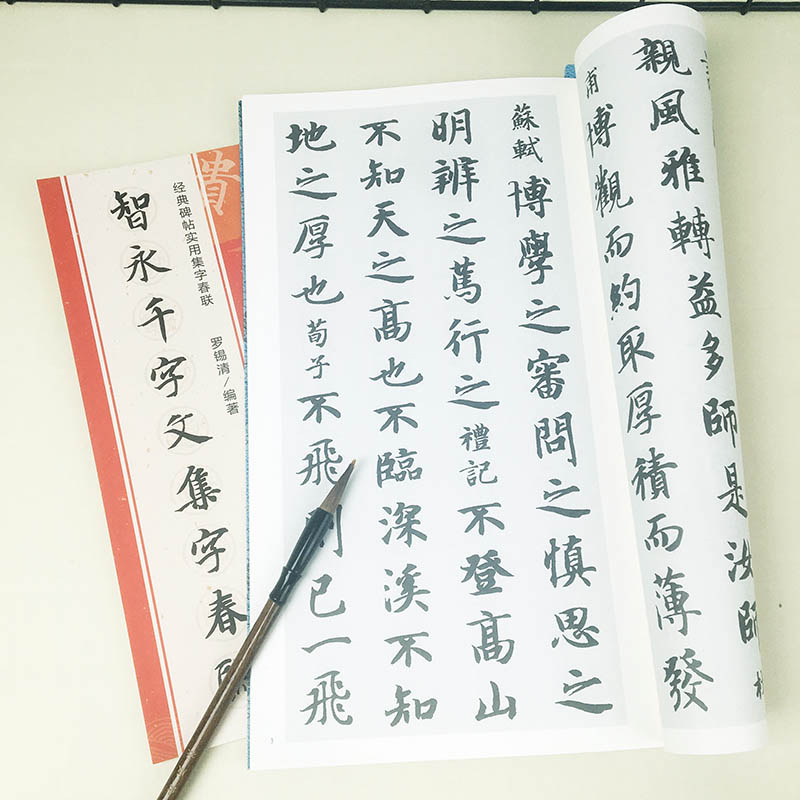 親風雅轉益多師是汝師
甫 博觀而約取厚積而薄發
蘇軾 博學之審問之慎思之
明辨之篤行之 禮記 不登高山
不知天之高也不臨深溪不知
地之厚也 荀子 不飛 已一飛
经典碑帖实用集字春联
罗锡清/编著
智永千字文集字春